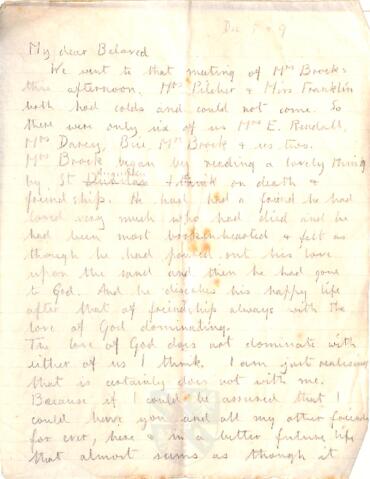 Dec 5 09
My dear Beloved
We went to that meeting of Mrs Brock's
this afternoon. Mrs Pilcher & Miss Franklin
both had colds and could not come. So
there were only six of us Mrs E. Rendall,
Mrs Darcy, Bee, Mrs Brock & us two.
Mrs Brock began by reading a lovely thing
by St Augustine I think on death &
friendship. He had had a friend he had
loved very much who had died and he
had been most brokenhearted & felt as
though he had poured out his love
upon the sand and then he had gone
to God. And he describes his happy life
after that of friendship always with the
love of God dominating.
The love of God does not dominate with
either of us I think. I am just realising
that is certainly does not with me.
Because if I could be assured that I
could have you and all my other friends
for ever, here & in a better future life
that almost seems as though it